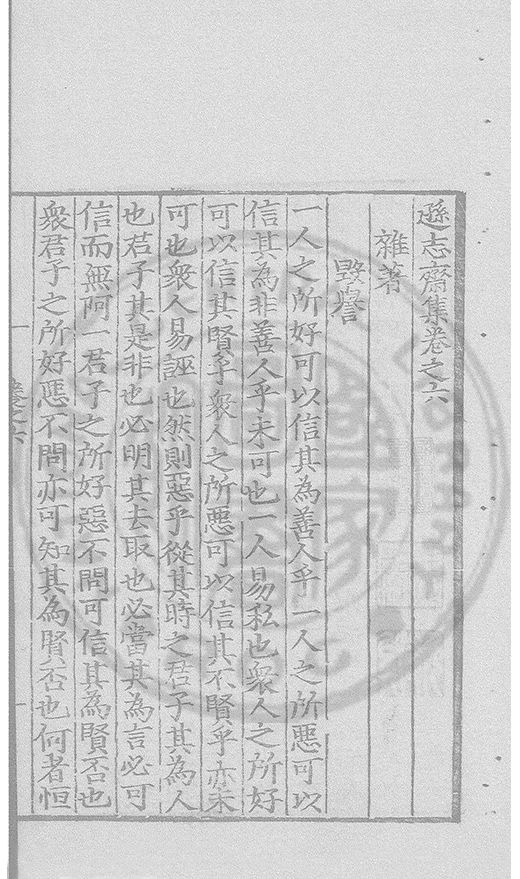 遜志齋集卷之六
雜著
毀譽
一人之所好可以信其為善人乎一人之所惡可以
信其為非善人乎未可也一人易私也衆人之所好
可以信其賢乎衆人之所惡可以信其不賢乎亦未
可也衆人易誣也然則惡乎從其時之君子其為人
也君子其是非也必明其去取也必當其為言必可
信而無阿一君子之所好惡不問可信其為賢否也
衆君子之所好惡不問亦可知其為賢否也何者恒
卷之六
一